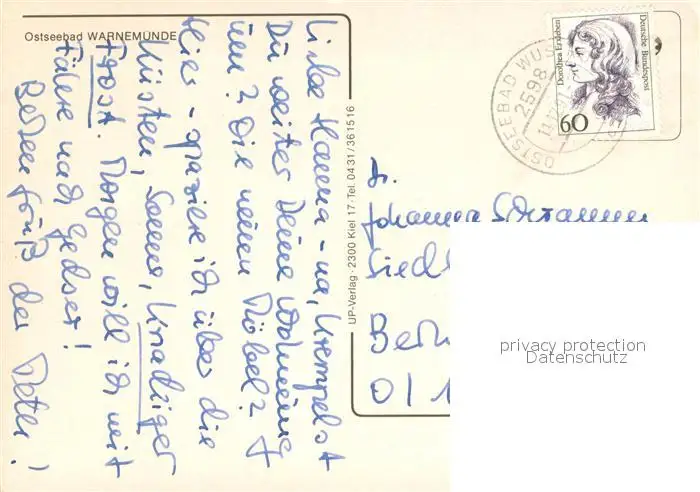 Ostseebad WARNEMÜNDE
Liebe Hanna - na, krempelst
Du weiter Deine Wohnung
um? Die neuen Möbel?
Hier - spaziere ich über die
Küsten, Sonne, knackiger
Frost. Morgen will ich mit
Fähre nach Gedser!
Beden Gruß der Peter!
UP-Verlag · 2300 Kiel 17 · Tel. 0431/361516
OSTSEEBAD WU
2598
Dorothea Erxleben
Deutsche Bundespost
60
Dr.
Johanna Schramm
Siedl
Ber
O/1
privacy protection
Datenschutz